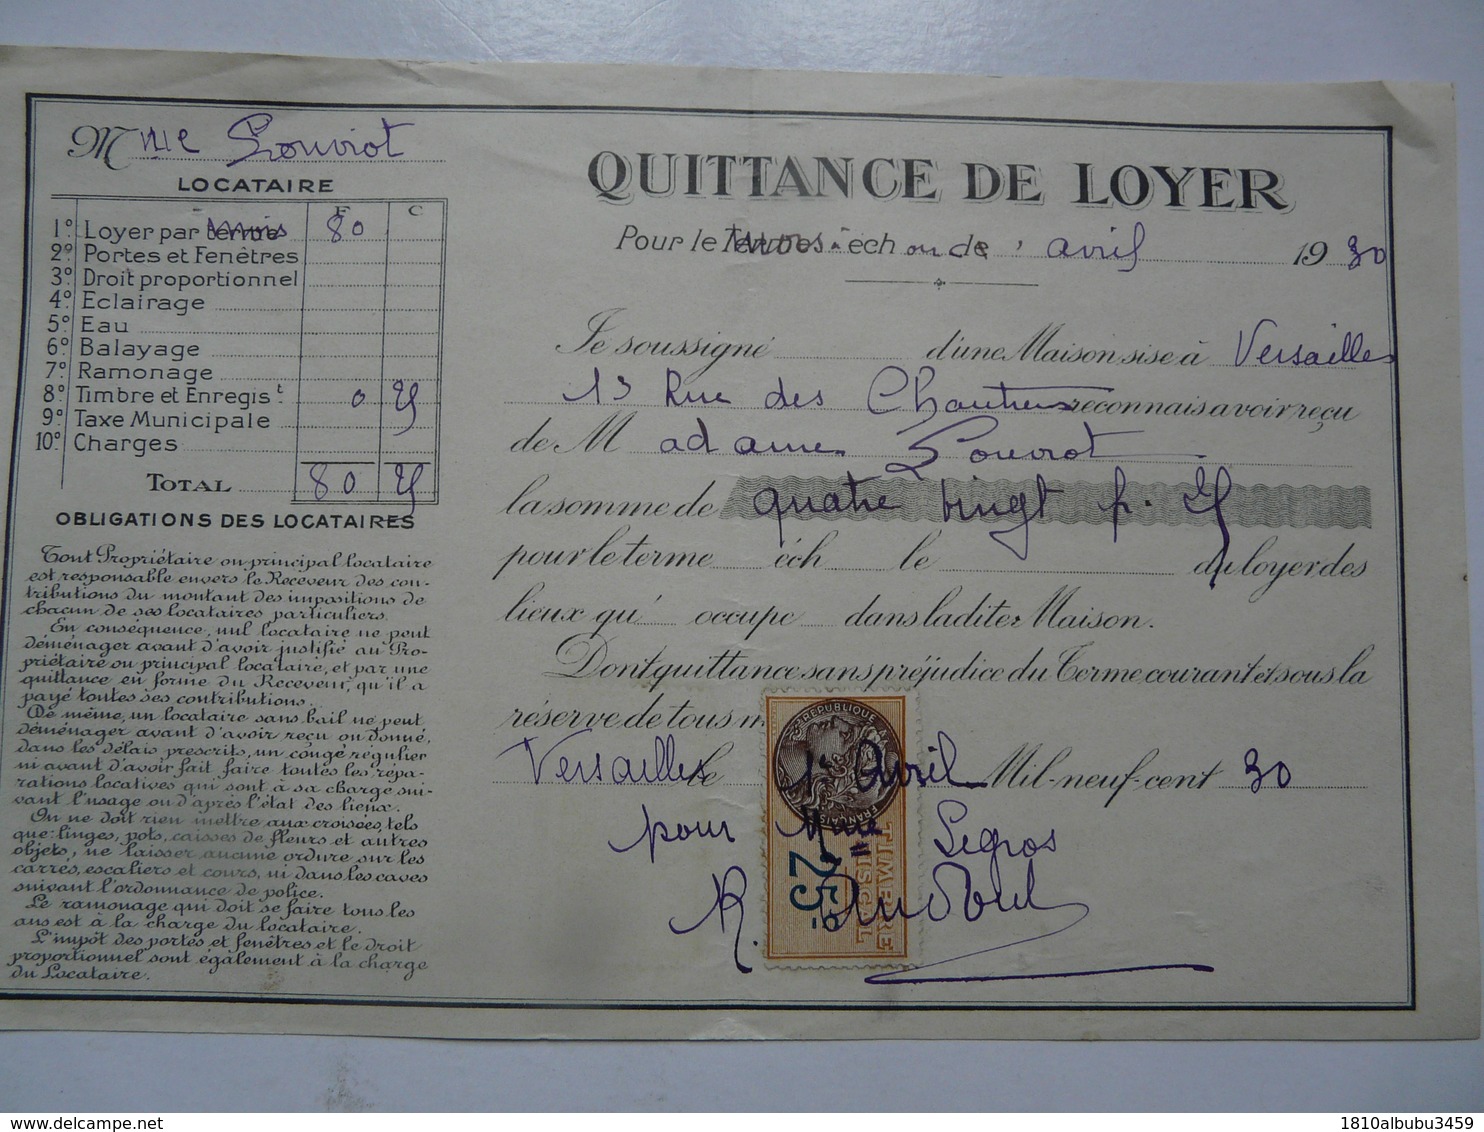 Mme Louviot
LOCATAIRE
F C
1º Loyer par mois 80
2º Portes et Fenêtres
3º Droit proportionnel
4º Eclairage
5º Eau
6º Balayage
7º Ramonage
8º Timbre et Enregis.t 0 25
9º Taxe Municipale
10º Charges
TOTAL 80 25
OBLIGATIONS DES LOCATAIRES
Tout Propriétaire ou principal locataire
est responsable envers le Receveur des con-
tributions du montant des impositions de
chacun de ses locataires particuliers.
En conséquence, nul locataire ne peut
déménager avant d'avoir justifié au Pro-
priétaire ou principal locataire, et par une
quittance en forme du Receveur, qu'il a
payé toutes ses contributions.
De même, un locataire sans bail ne peut
déménager avant d'avoir reçu ou donné,
dans les délais prescrits, un congé régulier
ni avant d'avoir fait faire toutes les répa-
rations locatives qui sont à sa charge sui-
vant l'usage ou d'après l'état des lieux.
On ne doit rien mettre aux croisées, tels
que: linges, pots, caisses de fleurs et autres
objets, ne laisser aucune ordure sur les
carrés, escaliers et cours, ni dans les caves
suivant l'ordonnance de police.
Le ramonage qui doit se faire tous les
ans est à la charge du locataire.
L'impôt des portes et fenêtres et le droit
proportionnel sont également à la charge
du Locataire.
QUITTANCE DE LOYER
Pour le mois éch de avril 1930
Je soussigné d'une Maison sise à Versailles
13 Rue des Chantiers reconnais avoir reçu
de Madame Louviot
la somme de quatre vingt f. 25
pour le terme éch le du loyer des
lieux qu' occupe dans ladite Maison.
Dont quittance sans préjudice du Terme courant et sous la
réserve de tous
Versailles le 1er Avril Mil-neuf-cent 30
pour Mme Legros
R.
RÉPUBLIQUE FRANÇAISE
TIMBRE FISCAL
25c
delcampe.net
1810albubu3459